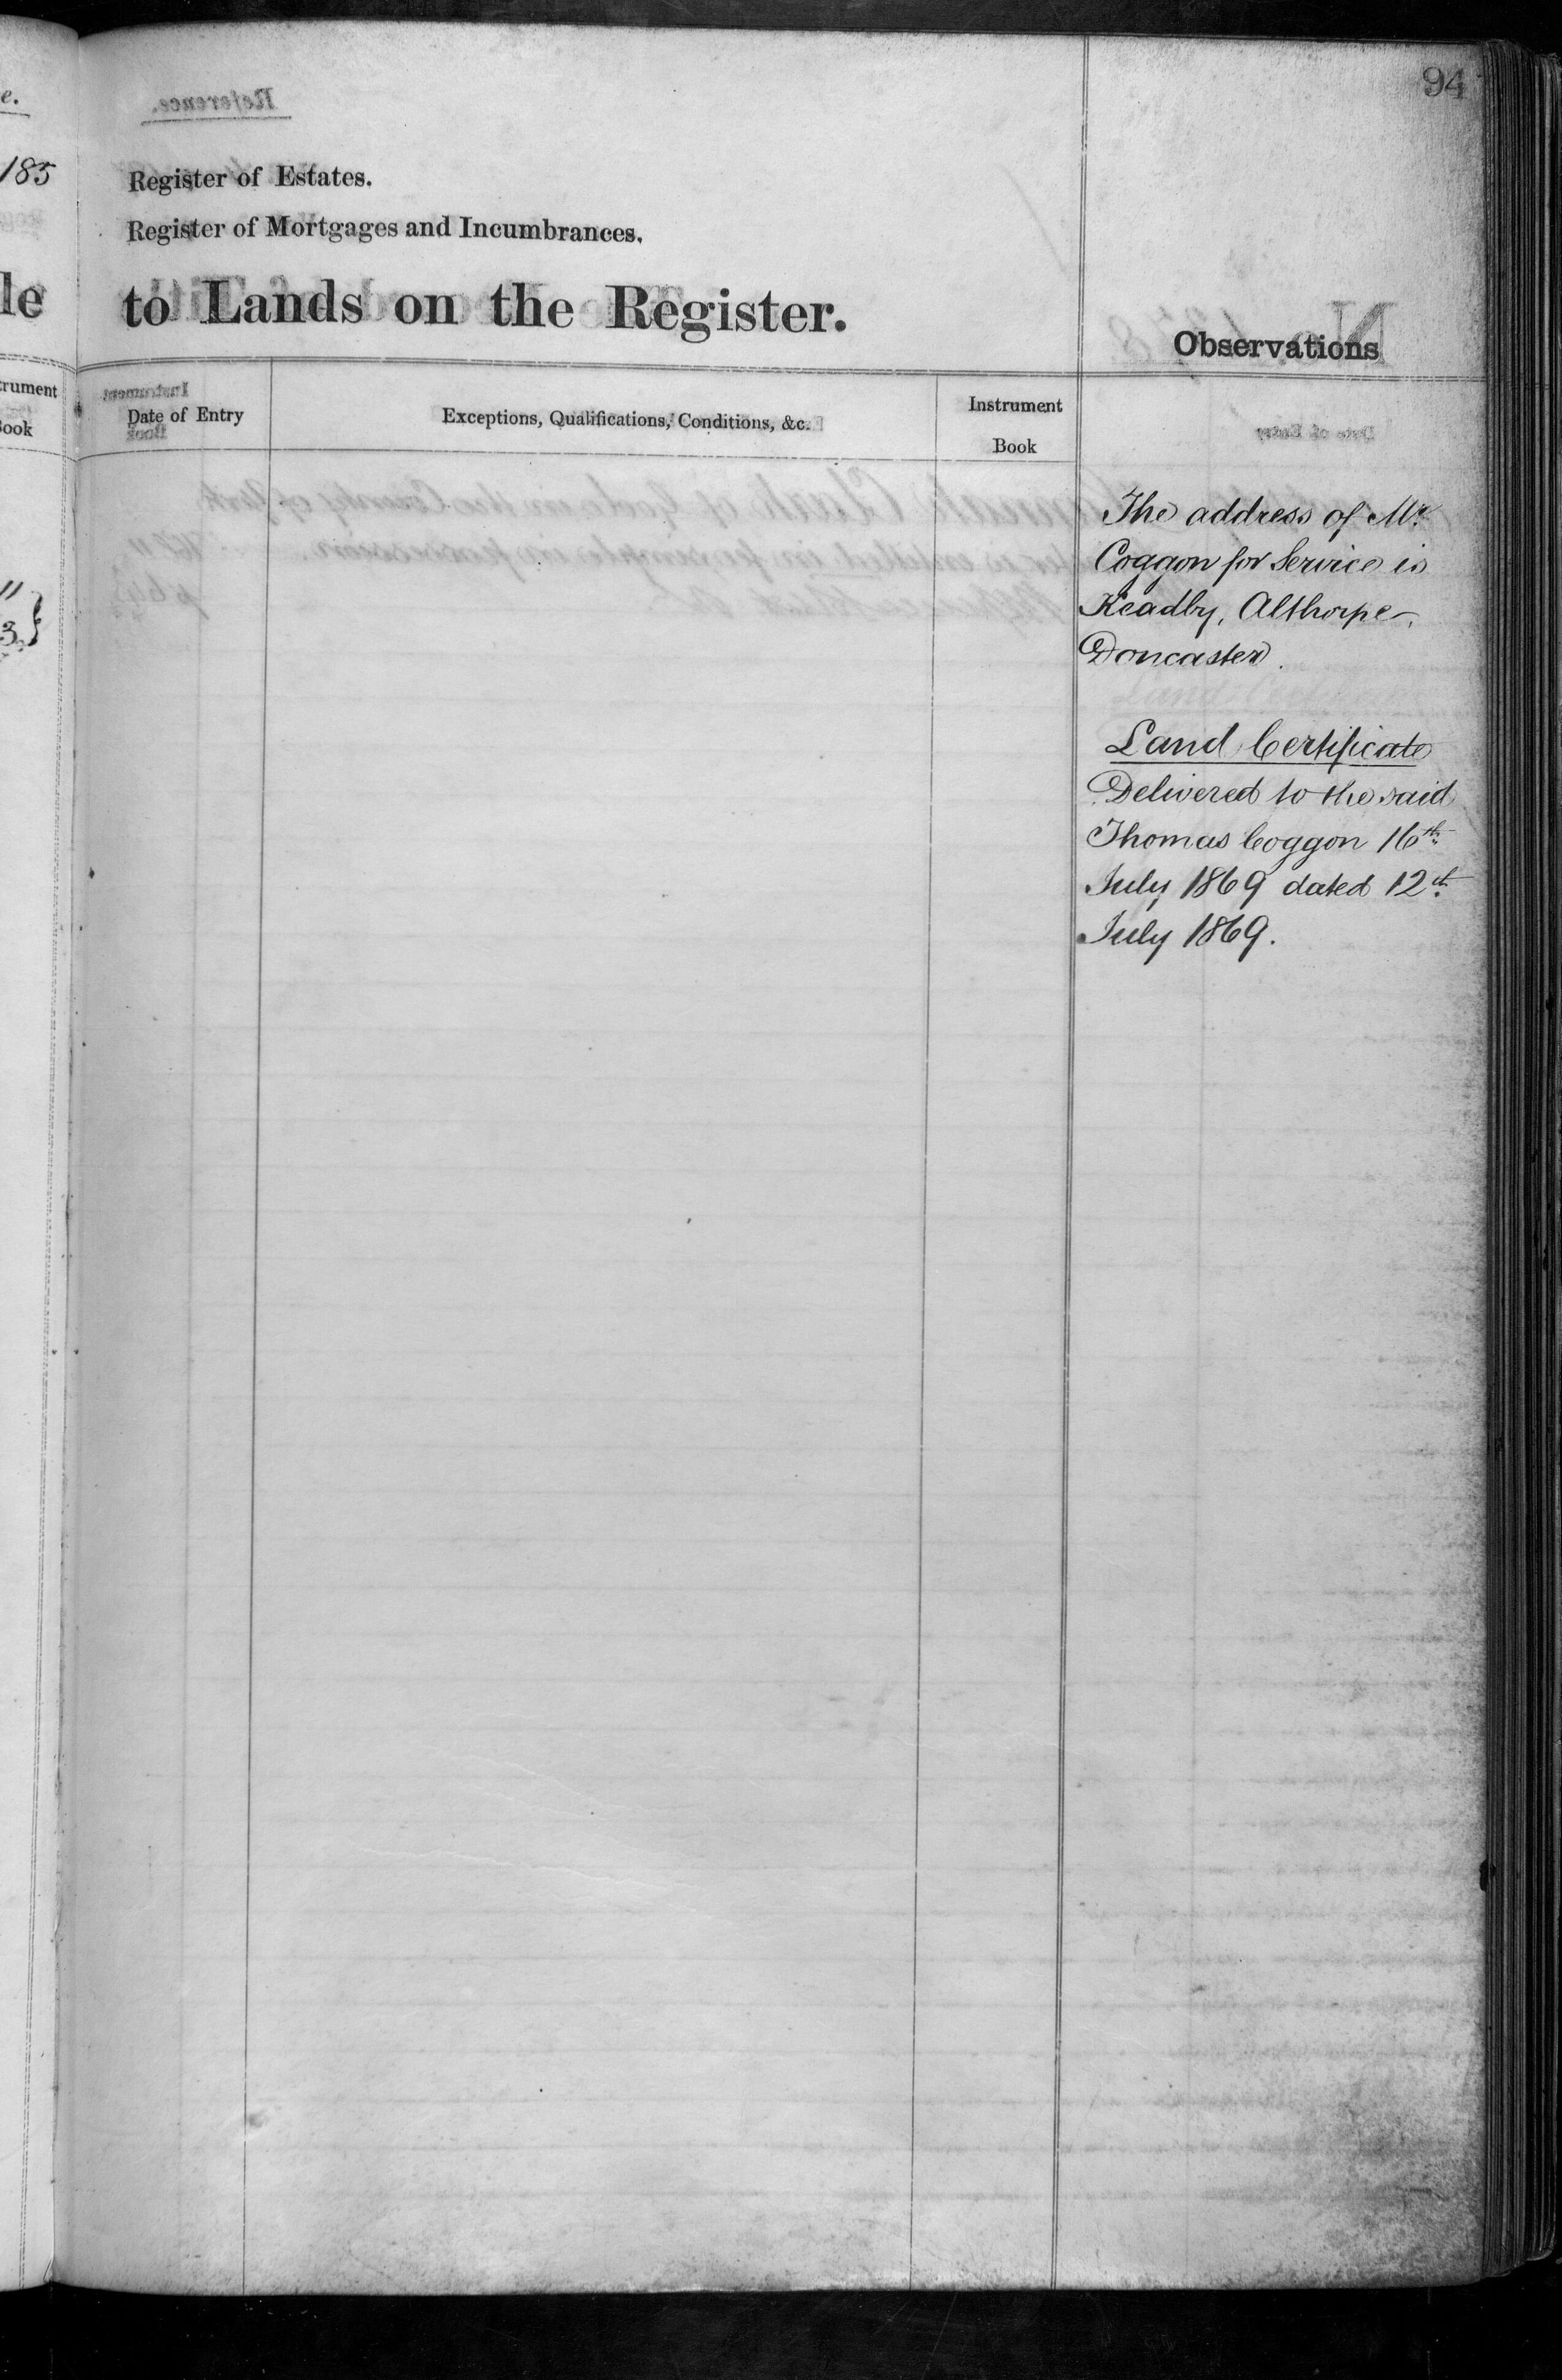 94
e.
185
Register of Estates.
Register of Mortgages and Incumbrances.
le
to Lands on the Register.
Observations
trument
Book
Date of Entry
Exceptions, Qualifications, Conditions, &c.
Instrument
Book
The address of Mr.
Coggon for Service is
Keadby, Althorpe,
Doncaster.
Land Certificate
Delivered to the said
Thomas Coggon 16th
July 1869 dated 12th
July 1869.
11
3